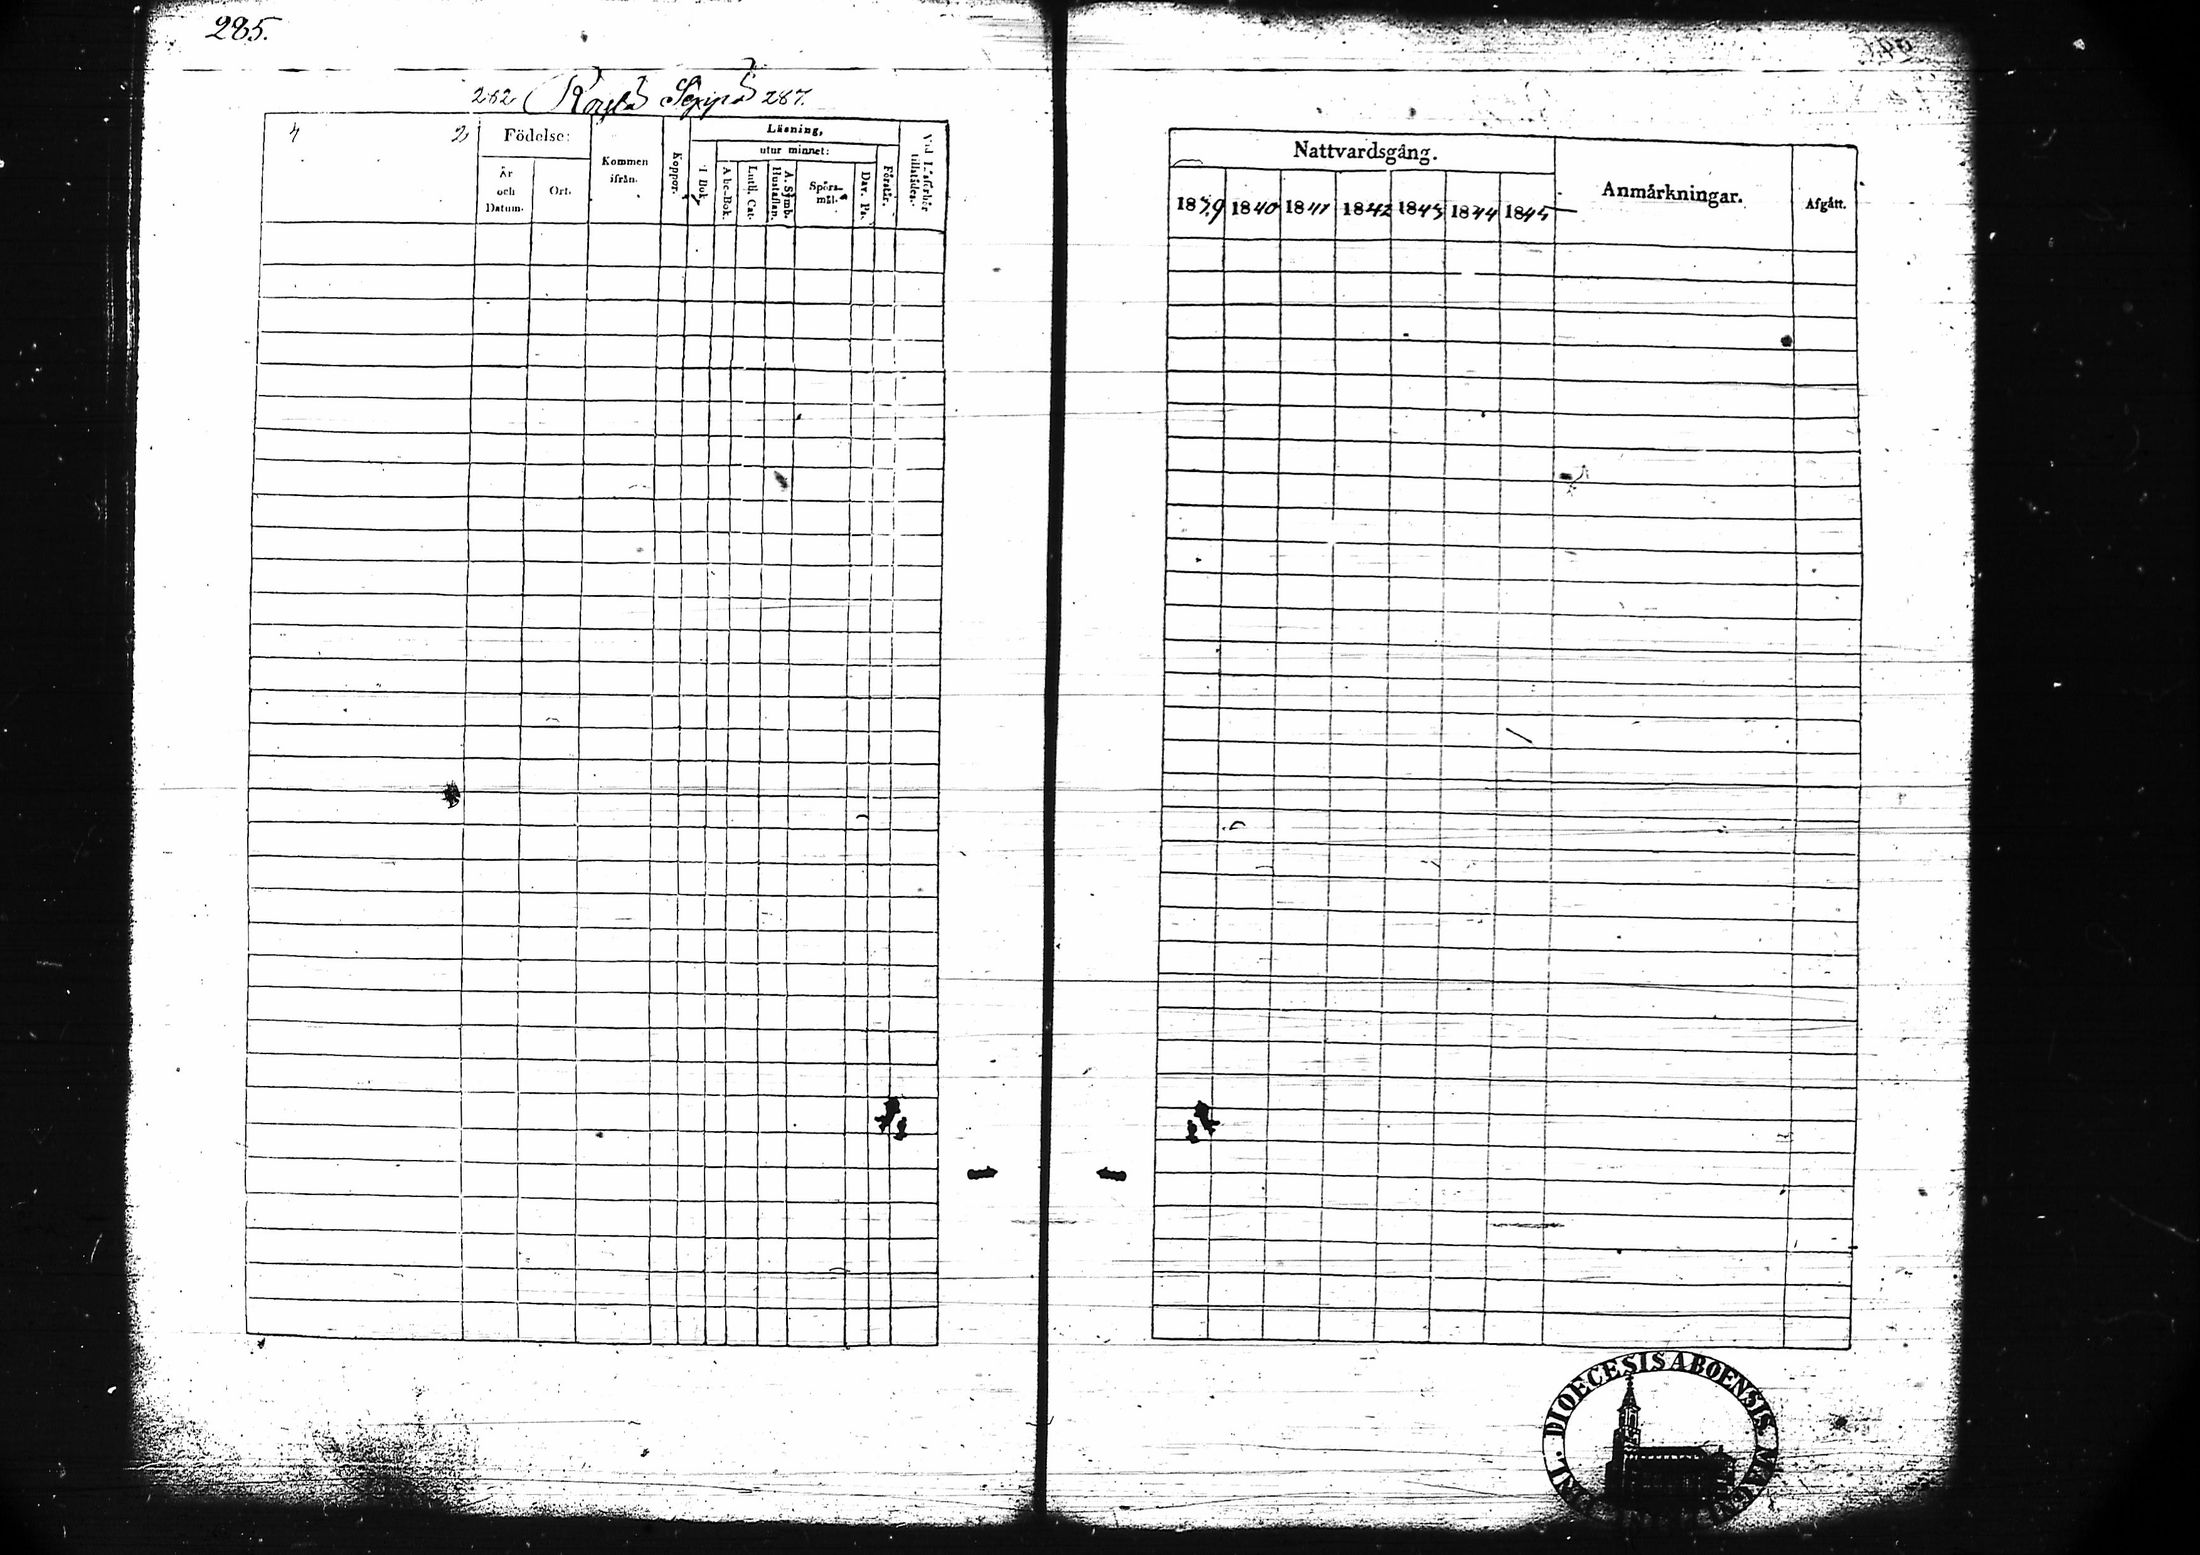 285.
282 Seppä 287.
4 2
Födelse:
År och Datum.
Ort.
Kommen ifrån.
Koppor.
Läsning,
utur minnet:
i Bok.
Abc-Bok.
Luth. Cat.
A. Symb. Hustaflan.
Spörsmål.
Dav. Ps.
Förstår.
Vid Läsförhör tillstädes.
Nattvardsgång.
1839 1840 1841 1842 1843 1844 1845
Anmärkningar.
Afgått.
DIOECESIS ABOENSIS